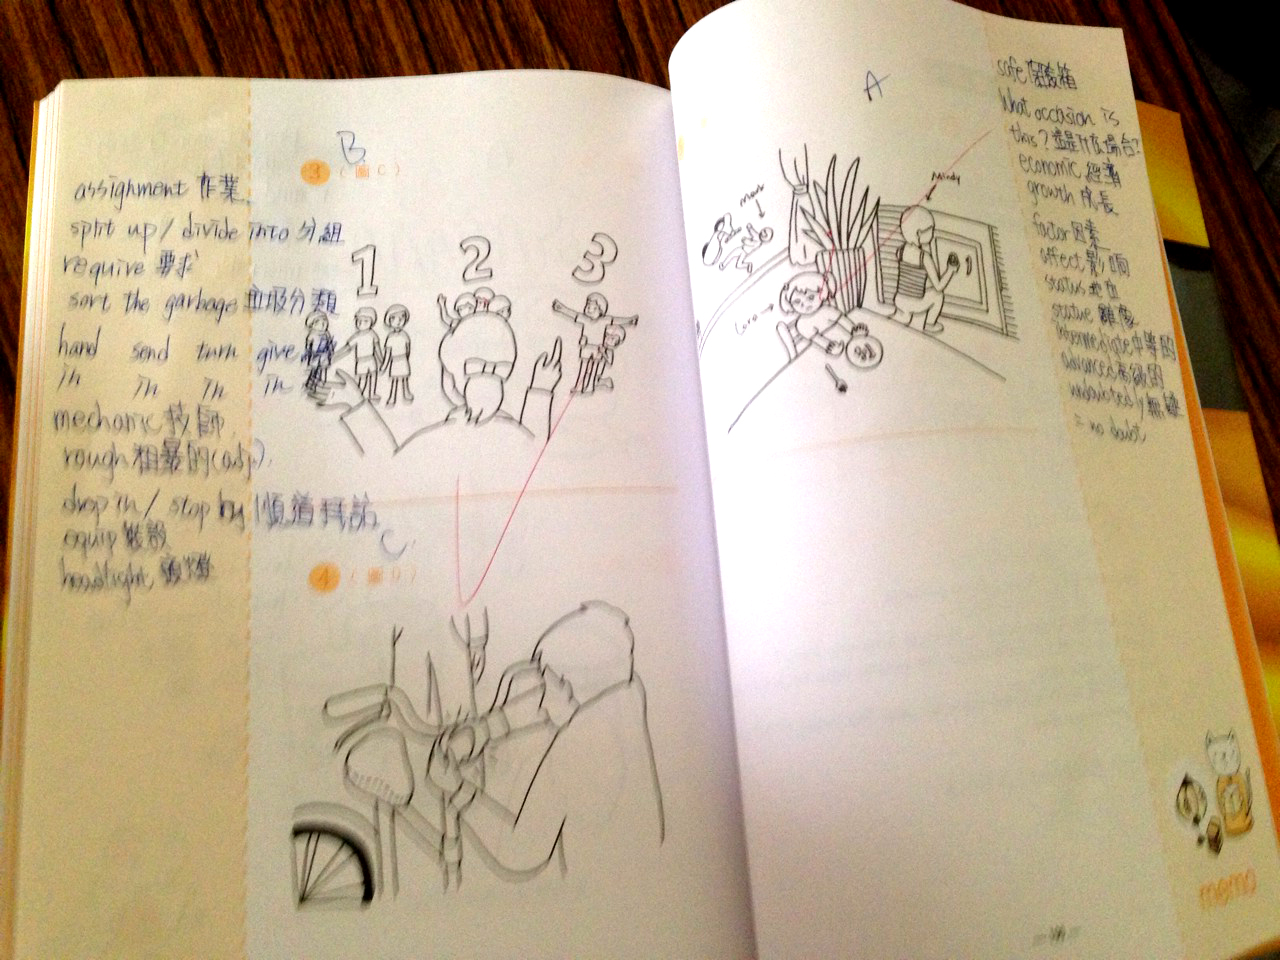 B
3 (圖C)
assignment 作業
split up / divide into 分組
require 要求
sort the garbage 垃圾分類
hand send turn give
in in in in
mechanic 技師
rough 粗暴的(adj).
drop in / stop by 順道拜訪
equip 裝設
headlight 頭燈
1 2 3
C.
4 (圖D)
A
safe 保險箱
What occasion is
this? 這是什麼場合?
economic 經濟
growth 成長
factor 因素
affect 影响
status 地位
statue 雕像
intermediate 中等的
advanced 高級的
undoubtedly 無疑
= no doubt
Mark
Mindy
Lora
memo